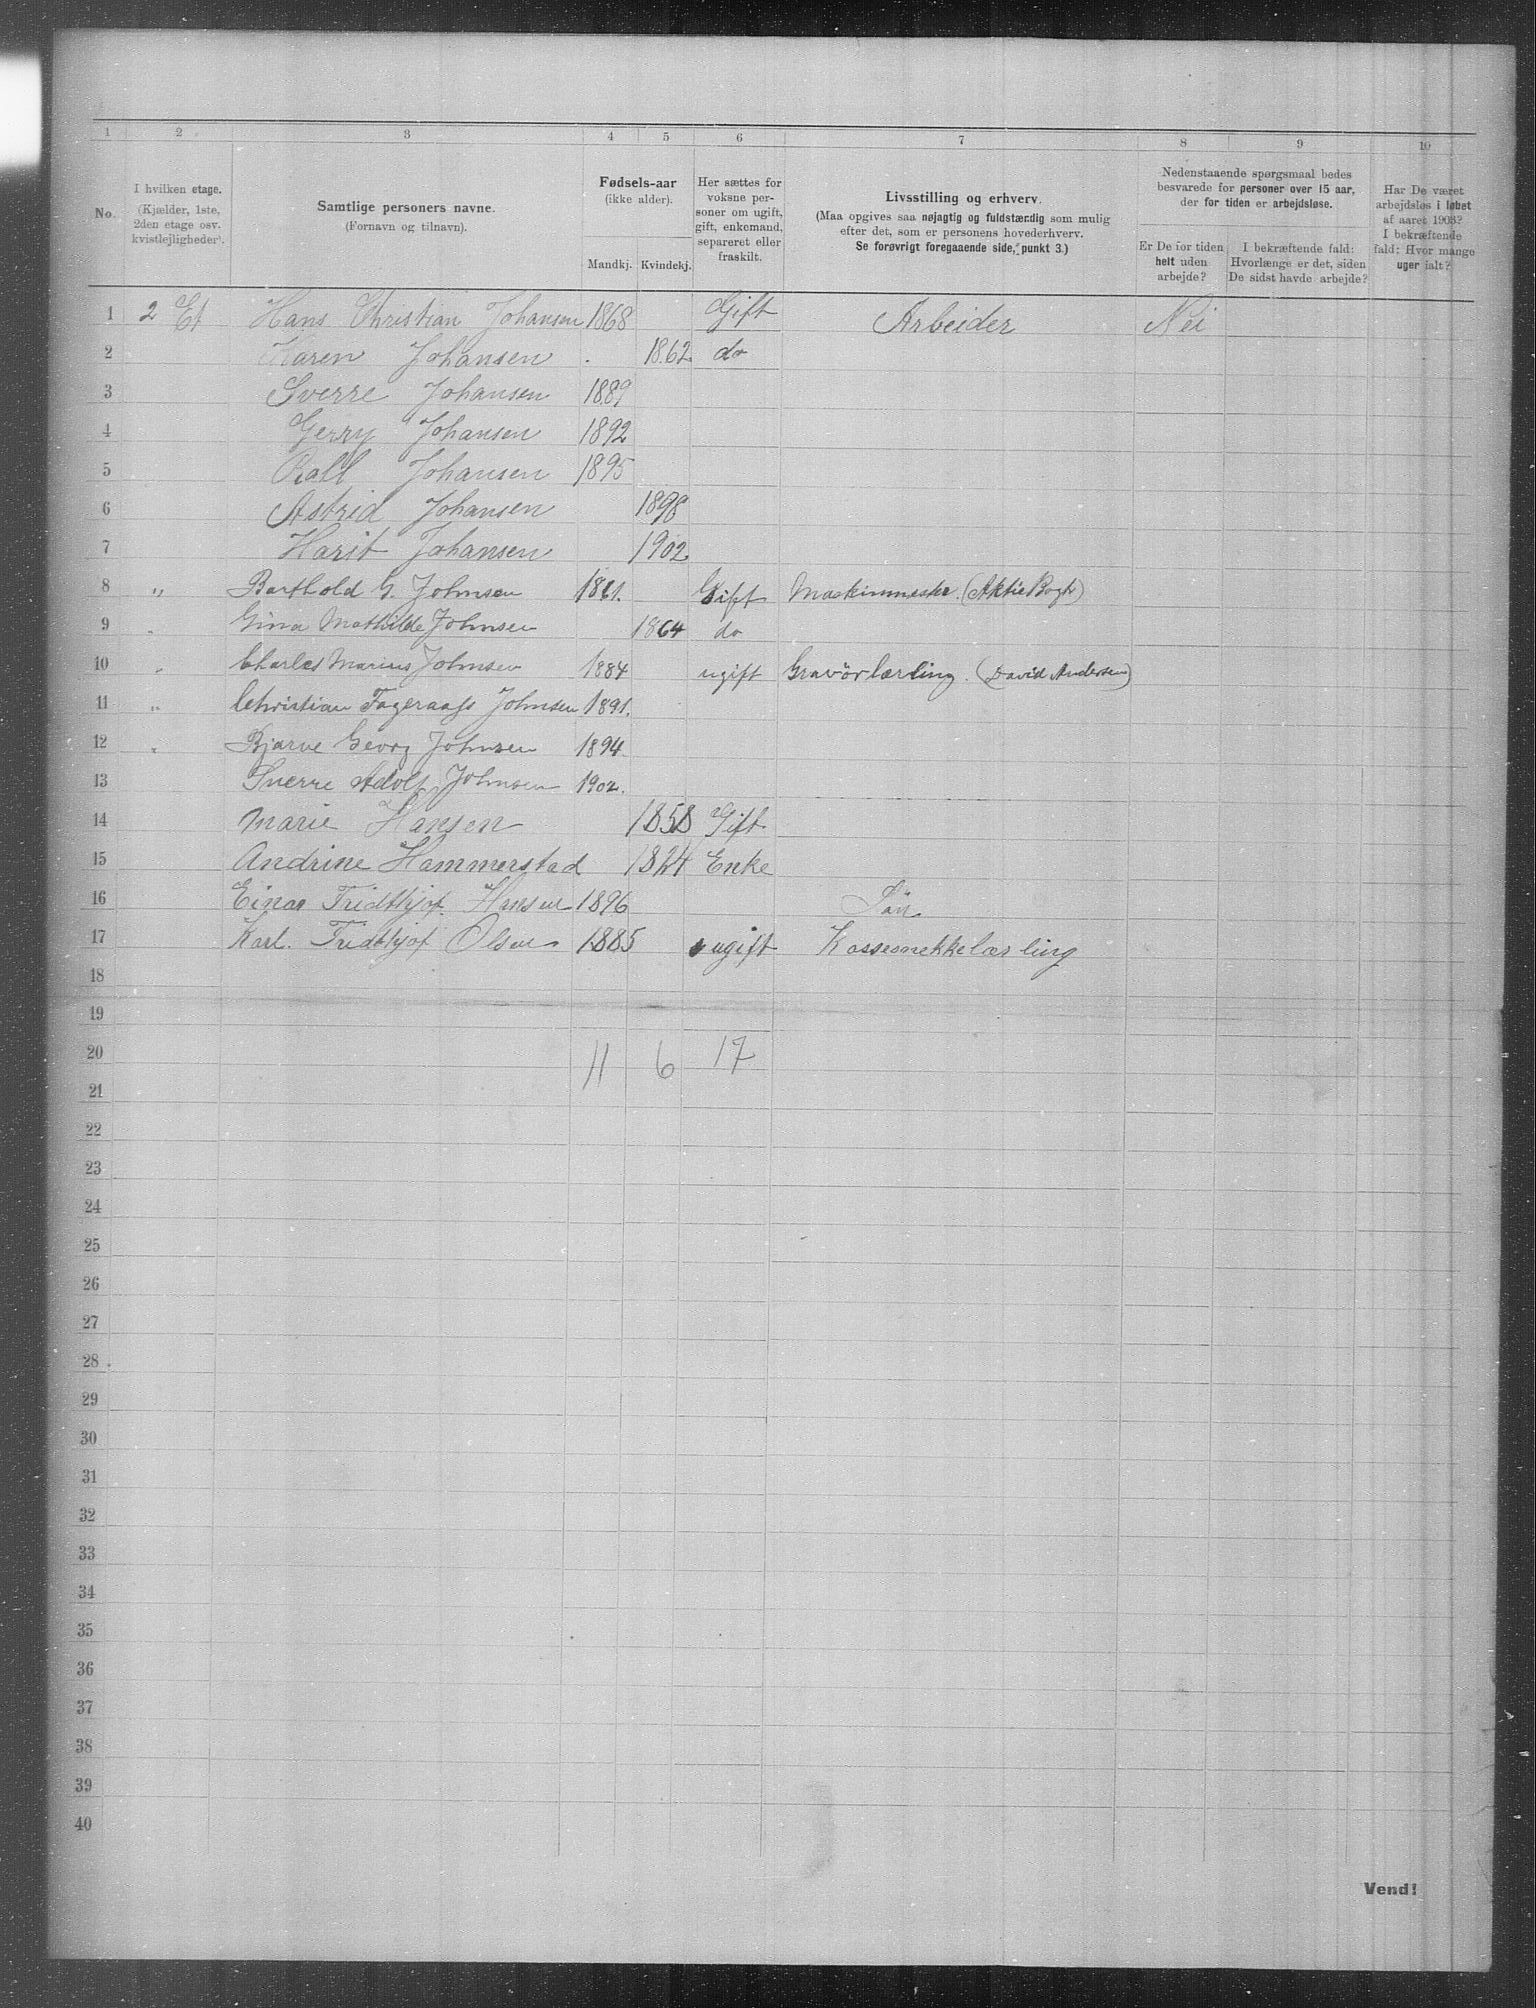 1 2 3 4 5 6 7 8 9 10
No.
I hvilken etage.
(Kjælder, 1ste,
2den etage osv.
kvistlejligheder).
Samtlige personers navne.
(Fornavn og tilnavn).
Fødsels-aar
(ikke alder).
Mandkj. Kvindekj.
Her sættes for
voksne per-
soner om ugift,
gift, enkemand,
separeret eller
fraskilt.
Livsstilling og erhverv.
(Maa opgives saa nøjagtig og fuldstændig som mulig
efter det, som er personens hovederhverv.
Se forøvrigt foregaaende side, punkt 3.)
Nedenstaaende spørgsmaal bedes
besvarede for personer over 15 aar,
der for tiden er arbejdsløse.
Er De for tiden
helt uden
arbejde?
I bekræftende fald:
Hvorlænge er det, siden
De sidst havde arbejde?
Har De været
arbejdsløs i løbet
af aaret 1903?
I bekræftende
fald: Hvor mange
uger ialt?
1 2 Et Hans Christian Johansen 1868 Gift Arbeider Nei
2 Karen Johansen 1862 do
3 Sverre Johansen 1889
4 Gerry Johansen 1892
5 Johansen 1895
6 Astrid Johansen 1898
7 Harit Johansen 1902
8 " Barthold G. Johnsen 1861. Gift Maskinmester. (Aktie Bogtr)
9 " Gina Mathilde Johnsen 1864 do
10 " Charles Marius Johnsen 1884 ugift Gravörlærling. (David Andersen)
11 " Christian Fageraas Johnsen 1891.
12 " Bjarne Georg Johnsen 1894.
13 Sverre Adolf Johnsen 1902.
14 Marie Hansen 1858 Gift
15 Andrine Hammerstad 1824 Enke
16 Einar Fridthjof. Hansen 1896 Sön
17 Karl. Fridthjof Olsen 1885 ugift Kassesnekkelærling
18
19
20 11 6 17
21
22
23
24
25
26
27
28
29
30
31
32
33
34
35
36
37
38
39
40
Vend!